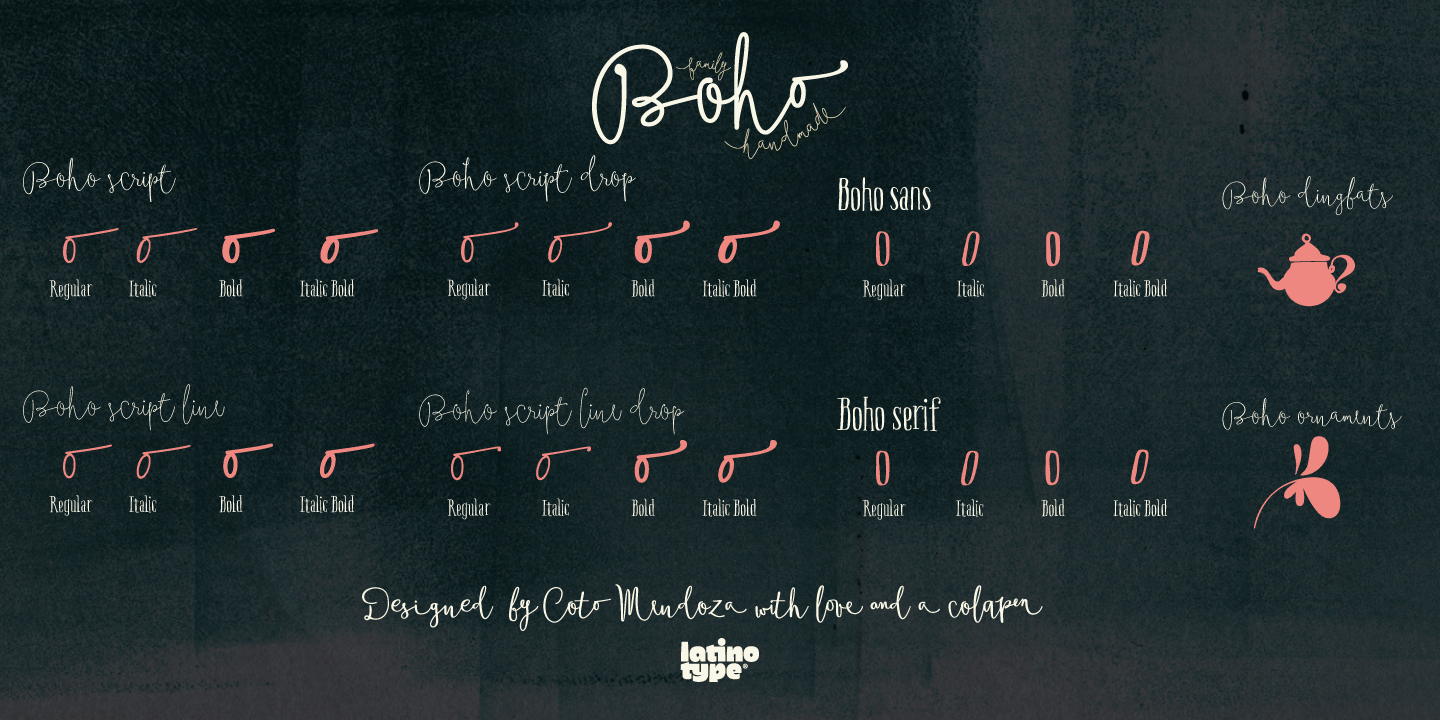 family
Boho
handmade
Boho script
o o o o
Regular Italic Bold Italic Bold
Boho script drop
o o o o
Regular Italic Bold Italic Bold
Boho sans
o o o o
Regular Italic Bold Italic Bold
Boho dingbats
Boho script line
o o o o
Regular Italic Bold Italic Bold
Boho script line drop
o o o o
Regular Italic Bold Italic Bold
Boho serif
o o o o
Regular Italic Bold Italic Bold
Boho ornaments
Designed by Coto Mendoza with love and a colapen
latino
type®